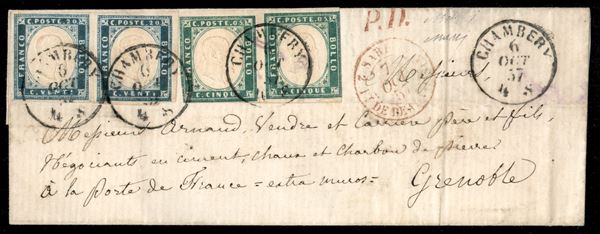 C. POSTE. 20 C. POSTE. 20 C. POSTE. 05 C. POSTE. 05
FRANCO BOLLO FRANCO BOLLO FRANCO BOLLO FRANCO BOLLO
C. VENTI C. VENTI C. CINQUE C. CINQUE
CHAMBERY
6
4 S
CHAMBERY
6
4 S
CHAMBERY
P.D.
CHAMBERY
6
OCT
57
4 S
Messieurs,
Messieurs Arnaud, Vendre et Carrière père et fils,
Négociants en ciment, chaux et charbon de pierre
à la porte de France = extra muros=
Grenoble